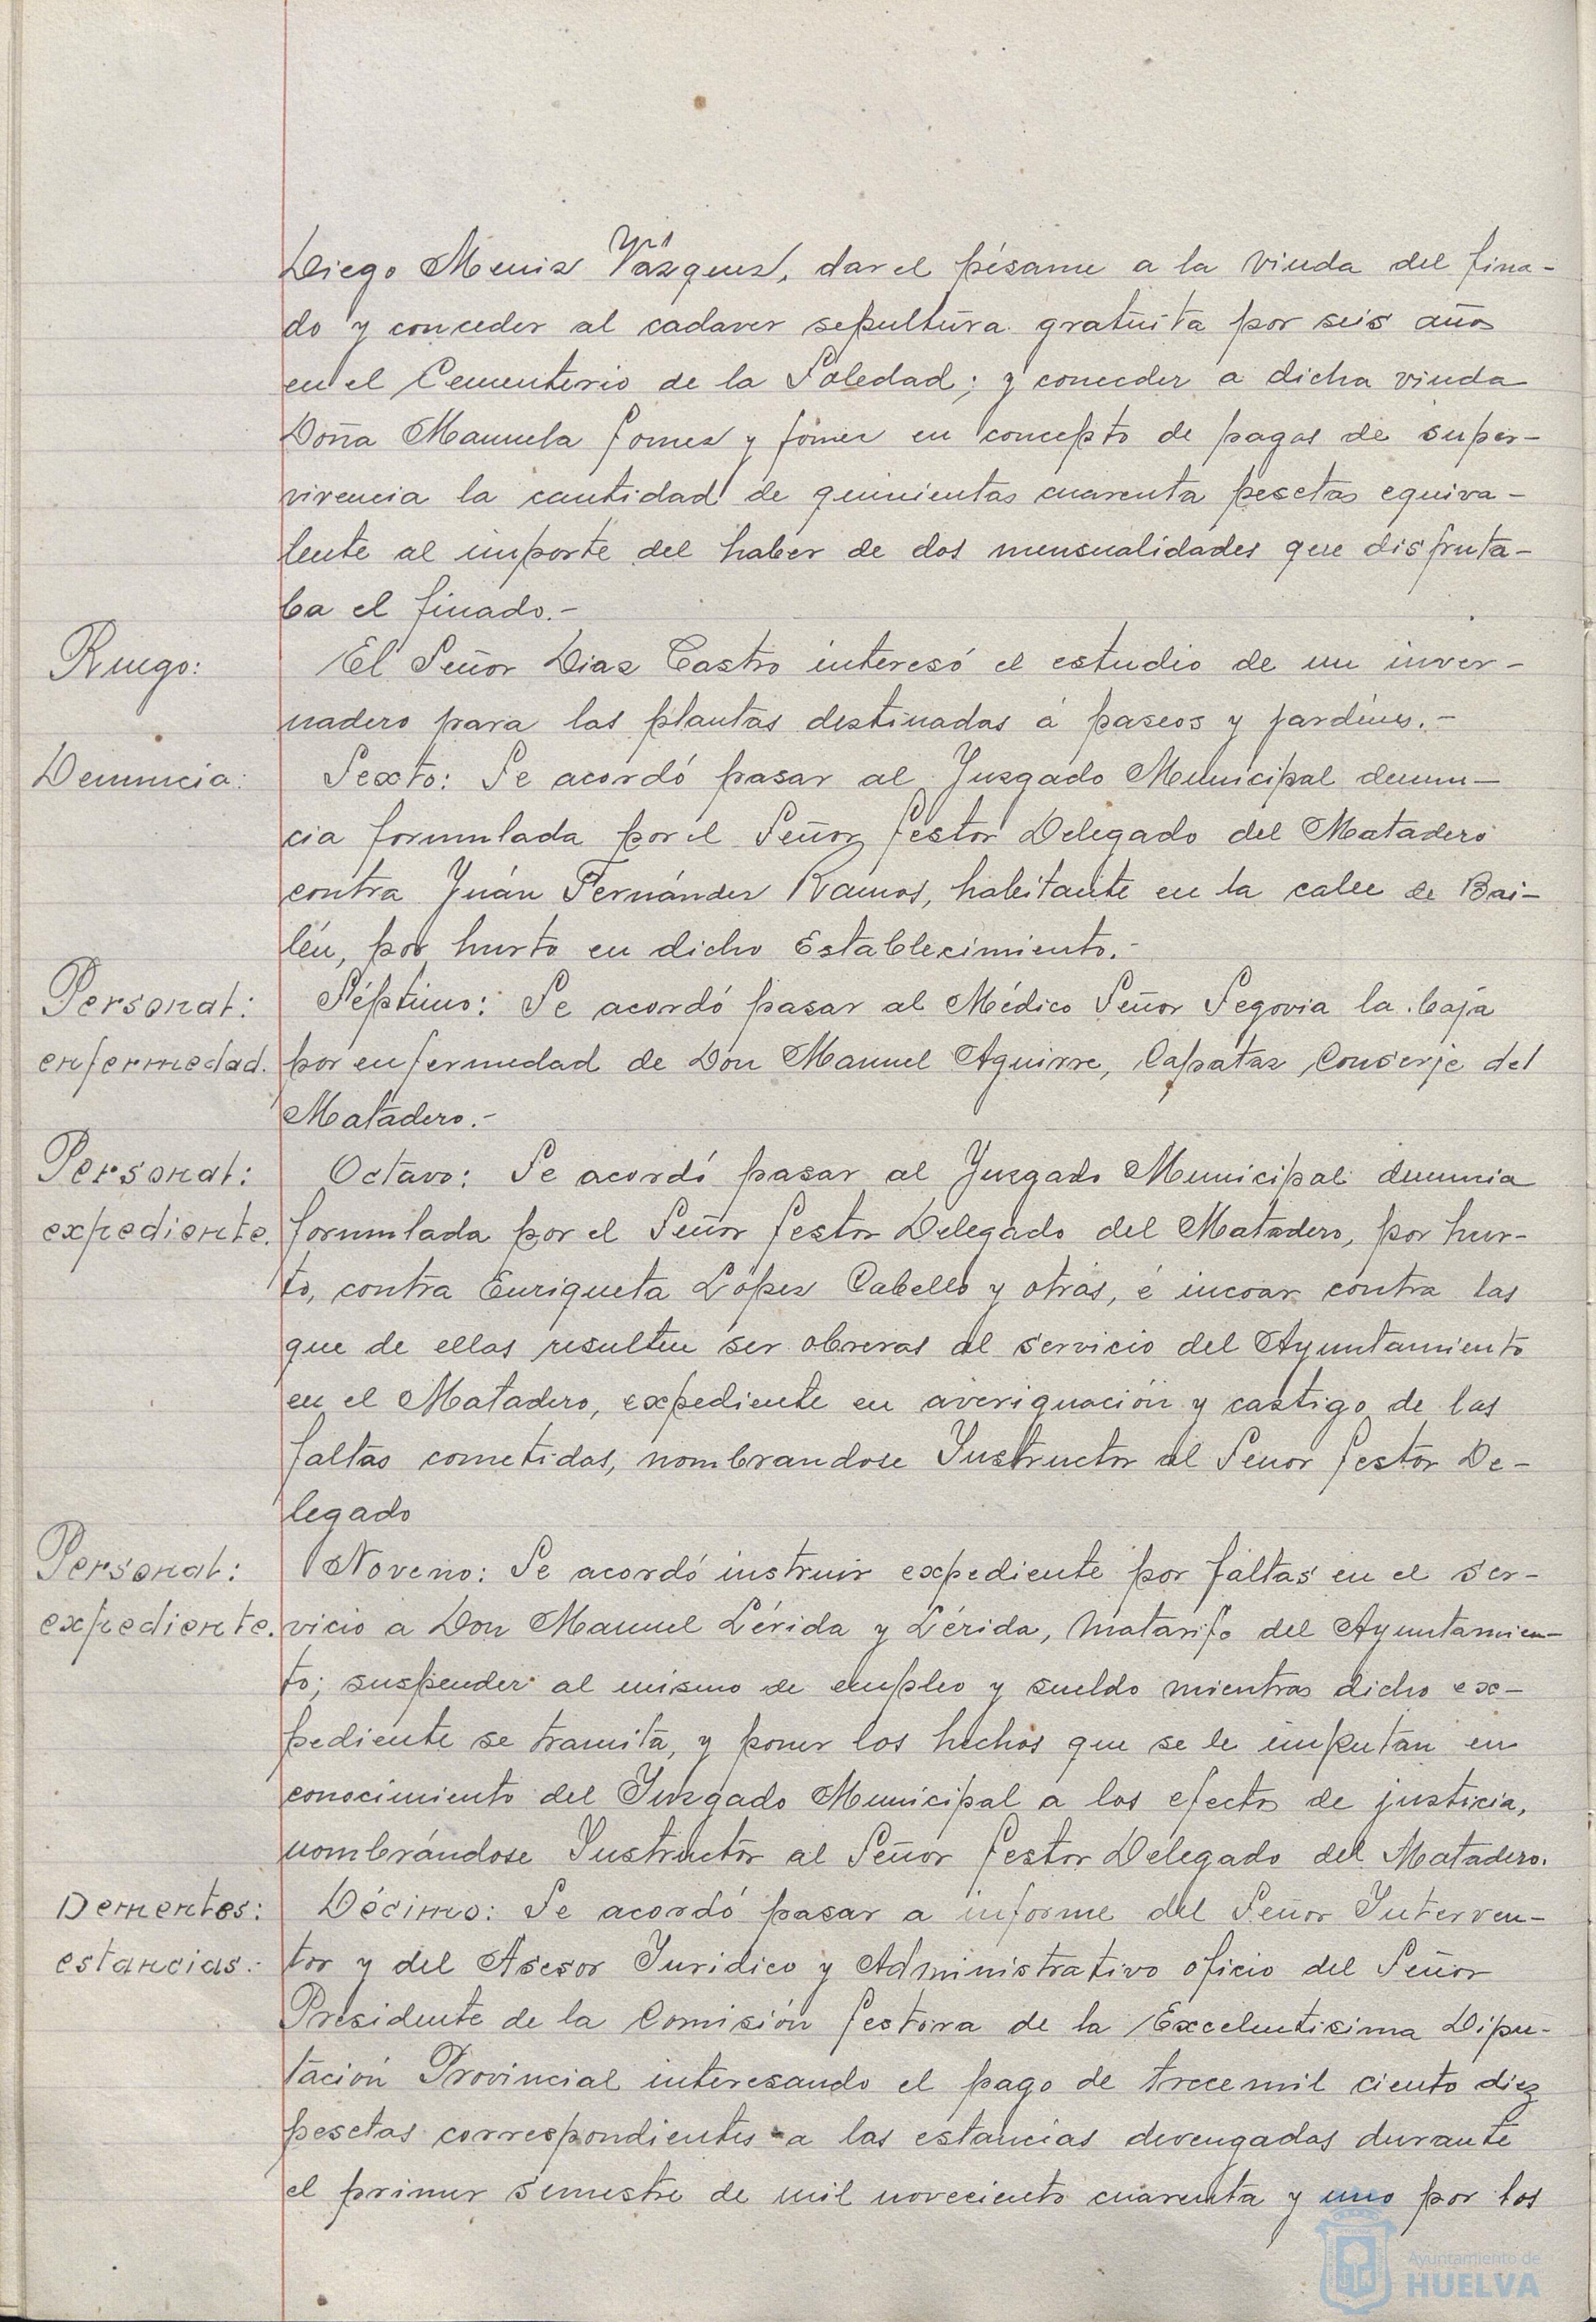 Diego Meniz Vázquez, dar el pésame a la viuda del fina-
do y conceder al cadaver sepultura gratuita por seis años
en el Cementerio de la Soledad; y conceder a dicha viuda
Doña Manuela Gomez y Gómez en concepto de pagas de super-
vivencia la cantidad de quinientas cuarenta pesetas equiva-
lente al importe del haber de dos mensualidades que disfruta-
ba el finado.-
Ruego: El Señor Diaz Castro interesó el estudio de un inver-
nadero para las plantas destinadas á paseos y jardines.-
Denuncia: Sexto: Se acordó pasar al Juzgado Municipal denun-
cia formulada por el Señor Gestor Delegado del Matadero
contra Juán Fernández Ramos, habitante en la calle de Bai-
lén, por hurto en dicho Establecimiento.-
Personal: Séptimo: Se acordó pasar al Médico Señor Segovia la baja
enfermedad. por enfermedad de Don Manuel Aguirre, Capataz Conserje del
Matadero.-
Personal: Octavo: Se acordó pasar al Juzgado Municipal denuncia
expediente. formulada por el Señor Gestor Delegado del Matadero, por hur-
to, contra Enriqueta López Cabello y otras, é incoar contra las
que de ellas resulten ser obreras al servicio del Ayuntamiento
en el Matadero, expediente en averiguación y castigo de las
faltas cometidas, nombrandose Instructor al Señor Gestor De-
legado
Personal: Noveno: Se acordó instruir expediente por faltas en el ser-
expediente. vicio a Don Manuel Lérida y Lérida, matarife del Ayuntamien-
to; suspender al mismo de empleo y sueldo mientras dicho ex-
pediente se tramita, y poner los hechos que se le imputan en
conocimiento del Juzgado Municipal a los efectos de justicia,
nombrándose Instructor al Señor Gestor Delegado del Matadero.
Dementes: Décimo: Se acordó pasar a informe del Señor Interven-
estancias: tor y del Asesor Juridico y Administrativo oficio del Señor
Presidente de la Comisión Gestora de la Excelentisima Dipu-
tación Provincial interesando el pago de trece mil ciento diez
pesetas correspondientes a las estancias devengadas durante
el primer semestre de mil novecientos cuarenta y uno por los
Ayuntamiento de
HUELVA